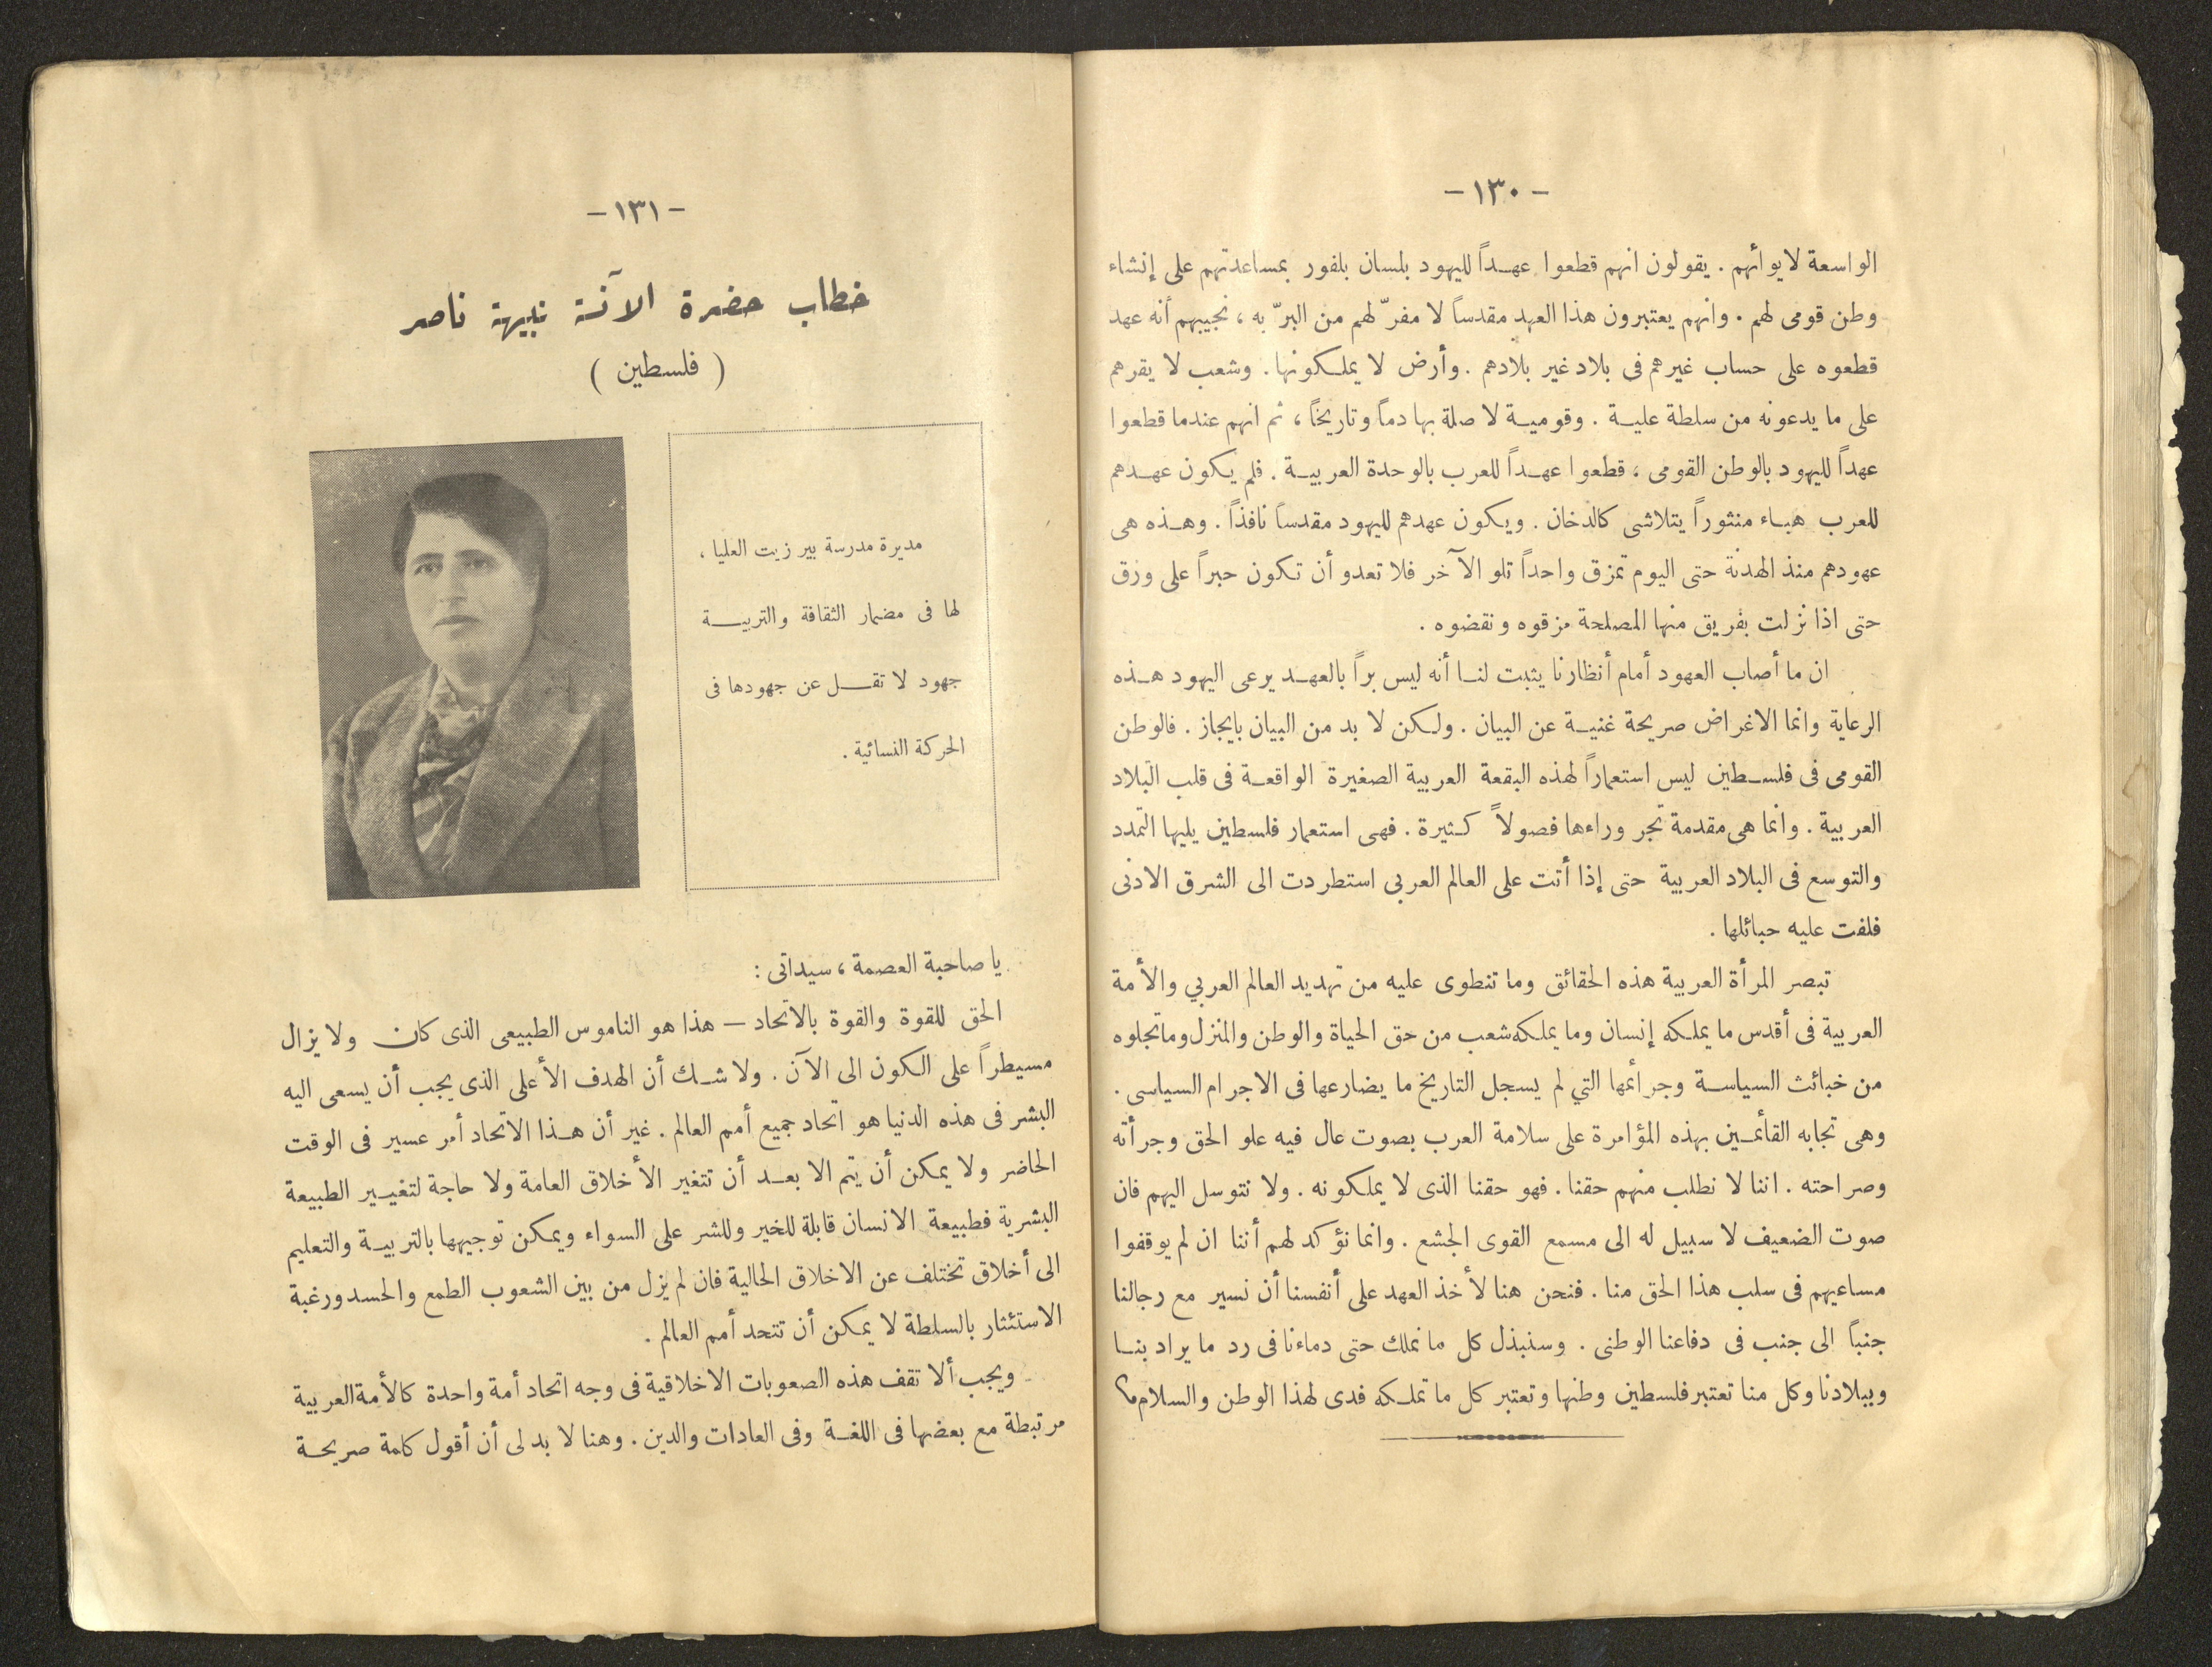 - ١٣٠ -
الواسعة لا يوائهم . يقولون انهم قطعوا عهداً لليهود بلسان بلفور بمساعدتهم على إنشاء
وطن قومى لهم . وانهم يعتبرون هذا العهد مقدساً لا مفرّ لهم من البرّ به ، نجيبهم أنه عهد
قطعوه على حساب غيرهم فى بلاد غير بلادهم . وأرض لا يملكونها . وشعب لا يقرهم
على ما يدعونه من سلطة علية . وقومية لا صلة بها دماً وتاريخاً ، ثم انهم عندما قطعوا
عهداً لليهود بالوطن القومى ، قطعوا عهداً للعرب بالوحدة العربية . فلم يكون عهدهم
للعرب هباء منثوراً يتلاشى كالدخان . ويكون عهدهم لليهود مقدساً نافذاً . وهذه هى
عهودهم منذ الهدنة حتى اليوم تمزق واحداً تلو الآخر فلا تعدو أن تكون حبراً على ورق
حتى اذا نزلت بفريق منها المصلحة مزقوه ونقضوه .
ان ما أصاب العهود أمام أنظارنا يثبت لنا أنه ليس براً بالعهد يرعى اليهود هذه
الرعاية وانما الاغراض صريحة غنية عن البيان . ولكن لا بد من البيان بايجاز . فالوطن
القومى فى فلسطين ليس استعماراً لهذه البقعة العربية الصغيرة الواقعة فى قلب البلاد
العربية . وانما هى مقدمة تجر وراءها فصولاً كثيرة . فهى استعمار فلسطين يليها التمدد
والتوسع فى البلاد العربية حتى إذا أتت على العالم العربى استطردت الى الشرق الادنى
فلفت عليه حبائلها .
تبصر المرأة العربية هذه الحقائق وما تنطوى عليه من تهديد العالم العربي والأمة
العربية فى أقدس ما يملكه إنسان وما يملكه شعب من حق الحياة والوطن والمنزل وما تجلوه
من خبائث السياسة وجرائمها التي لم يسجل التاريخ ما يضارعها فى الاجرام السياسى .
وهى تجابه القائمين بهذه المؤامرة على سلامة العرب بصوت عال فيه علو الحق وجرأته
وصراحته . اننا لا نطلب منهم حقنا . فهو حقنا الذى لا يملكونه . ولا نتوسل اليهم فان
صوت الضعيف لا سبيل له الى مسمع القوى الجشع . وانما نؤكد لهم أننا ان لم يوقفوا
مساعيهم فى سلب هذا الحق منا . فنحن هنا لأخذ العهد على أنفسنا أن نسير مع رجالنا
جنباً الى جنب فى دفاعنا الوطنى . وسنبذل كل ما نملك حتى دماءنا فى رد ما يراد بنا
وببلادنا وكل منا تعتبر فلسطين وطنها وتعتبر كل ما تملكه فدى لهذا الوطن والسلام
- ١٣١ -
خطاب حضرة الآنسة نبيهة ناصر
( فلسطين )
مديرة مدرسة بير زيت العليا ،
لها فى مضمار الثقافة والتربية
جهود لا تقل عن جهودها فى
الحركة النسائية .
يا صاحبة العصمة ، سيداتى :
الحق للقوة والقوة بالاتحاد — هذا هو الناموس الطبيعى الذى كان ولا يزال
مسيطراً على الكون الى الآن . ولا شك أن الهدف الأعلى الذى يجب أن يسعى اليه
البشر فى هذه الدنيا هو اتحاد جميع أمم العالم . غير أن هذا الاتحاد أمر عسير فى الوقت
الحاضر ولا يمكن أن يتم الا بعد أن تتغير الأخلاق العامة ولا حاجة لتغيير الطبيعة
البشرية فطبيعة الانسان قابلة للخير وللشر على السواء ويمكن توجيهها بالتربية والتعليم
الى أخلاق تختلف عن الاخلاق الحالية فان لم يزل من بين الشعوب الطمع والحسد ورغبة
الاستئثار بالسلطة لا يمكن أن تتحد أمم العالم .
ويجب ألا تقف هذه الصعوبات الاخلاقية فى وجه اتحاد أمة واحدة كالأمة العربية
مرتبطة مع بعضها فى اللغة وفى العادات والدين . وهنا لا بد لى أن أقول كلمة صريحة